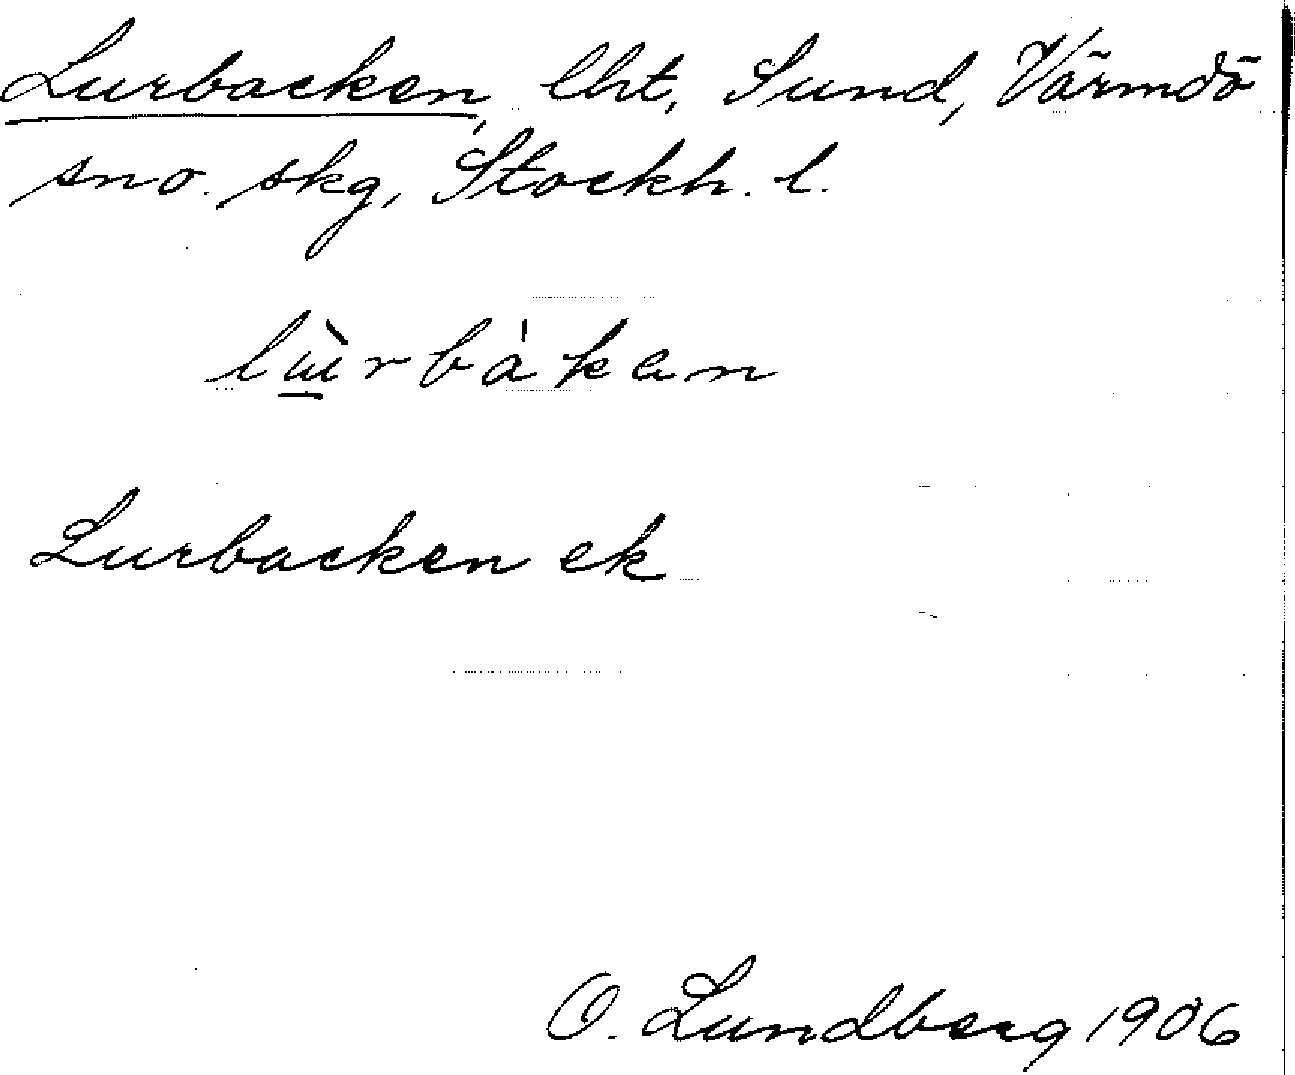 Lurbacken, lht, Sund, Värmdö
sno. skg, Stockh. l.
lɯ̀rbàkan
Lurbacken ek
O. Lundberg 1906